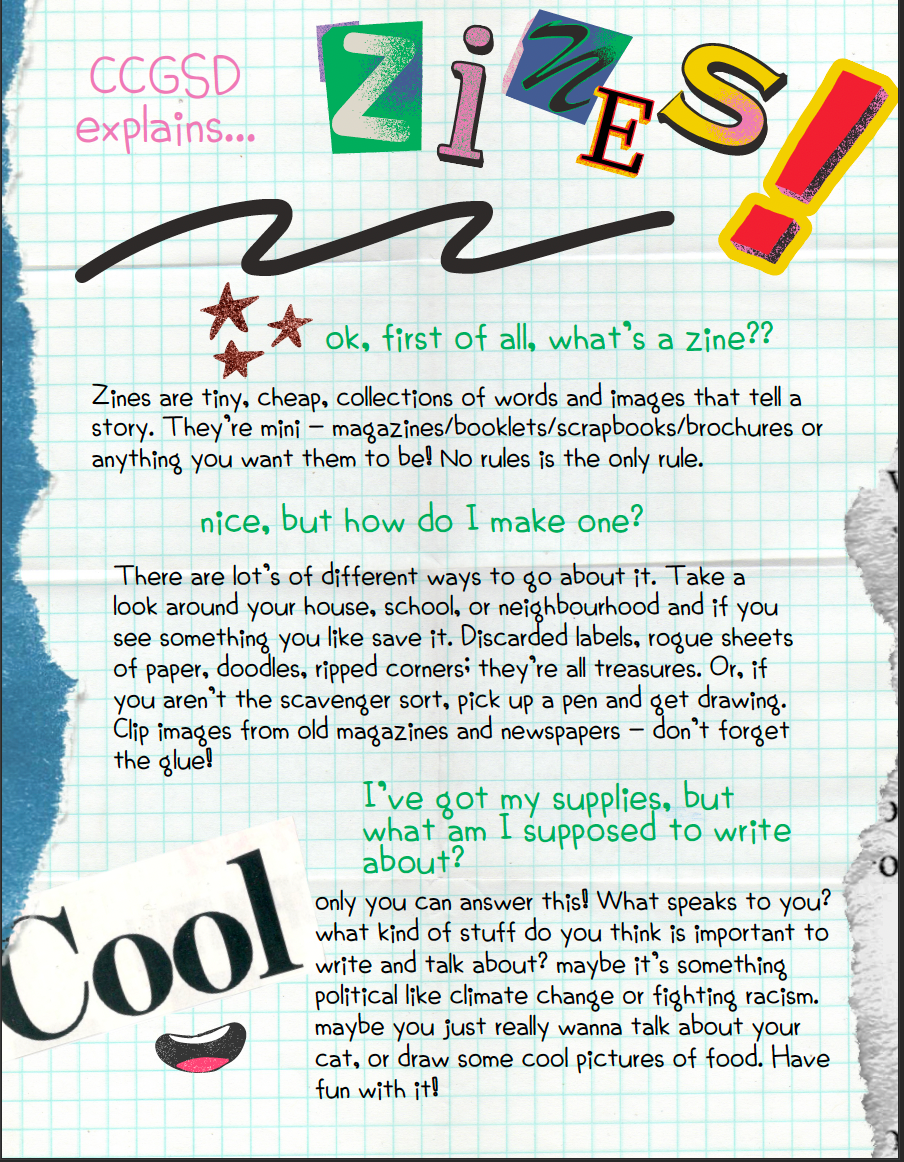 CCGSD
explains...
ZinEs!
ok, first of all, what's a zine??
Zines are tiny, cheap, collections of words and images that tell a
story. They're mini – magazines/booklets/scrapbooks/brochures or
anything you want them to be! No rules is the only rule.
nice, but how do I make one?
There are lot's of different ways to go about it. Take a
look around your house, school, or neighbourhood and if you
see something you like save it. Discarded labels, rogue sheets
of paper, doodles, ripped corners; they're all treasures. Or, if
you aren't the scavenger sort, pick up a pen and get drawing.
Clip images from old magazines and newspapers – don't forget
the glue!
I've got my supplies, but
what am I supposed to write
about?
Cool
only you can answer this! What speaks to you?
what kind of stuff do you think is important to
write and talk about? maybe it's something
political like climate change or fighting racism.
maybe you just really wanna talk about your
cat, or draw some cool pictures of food. Have
fun with it!